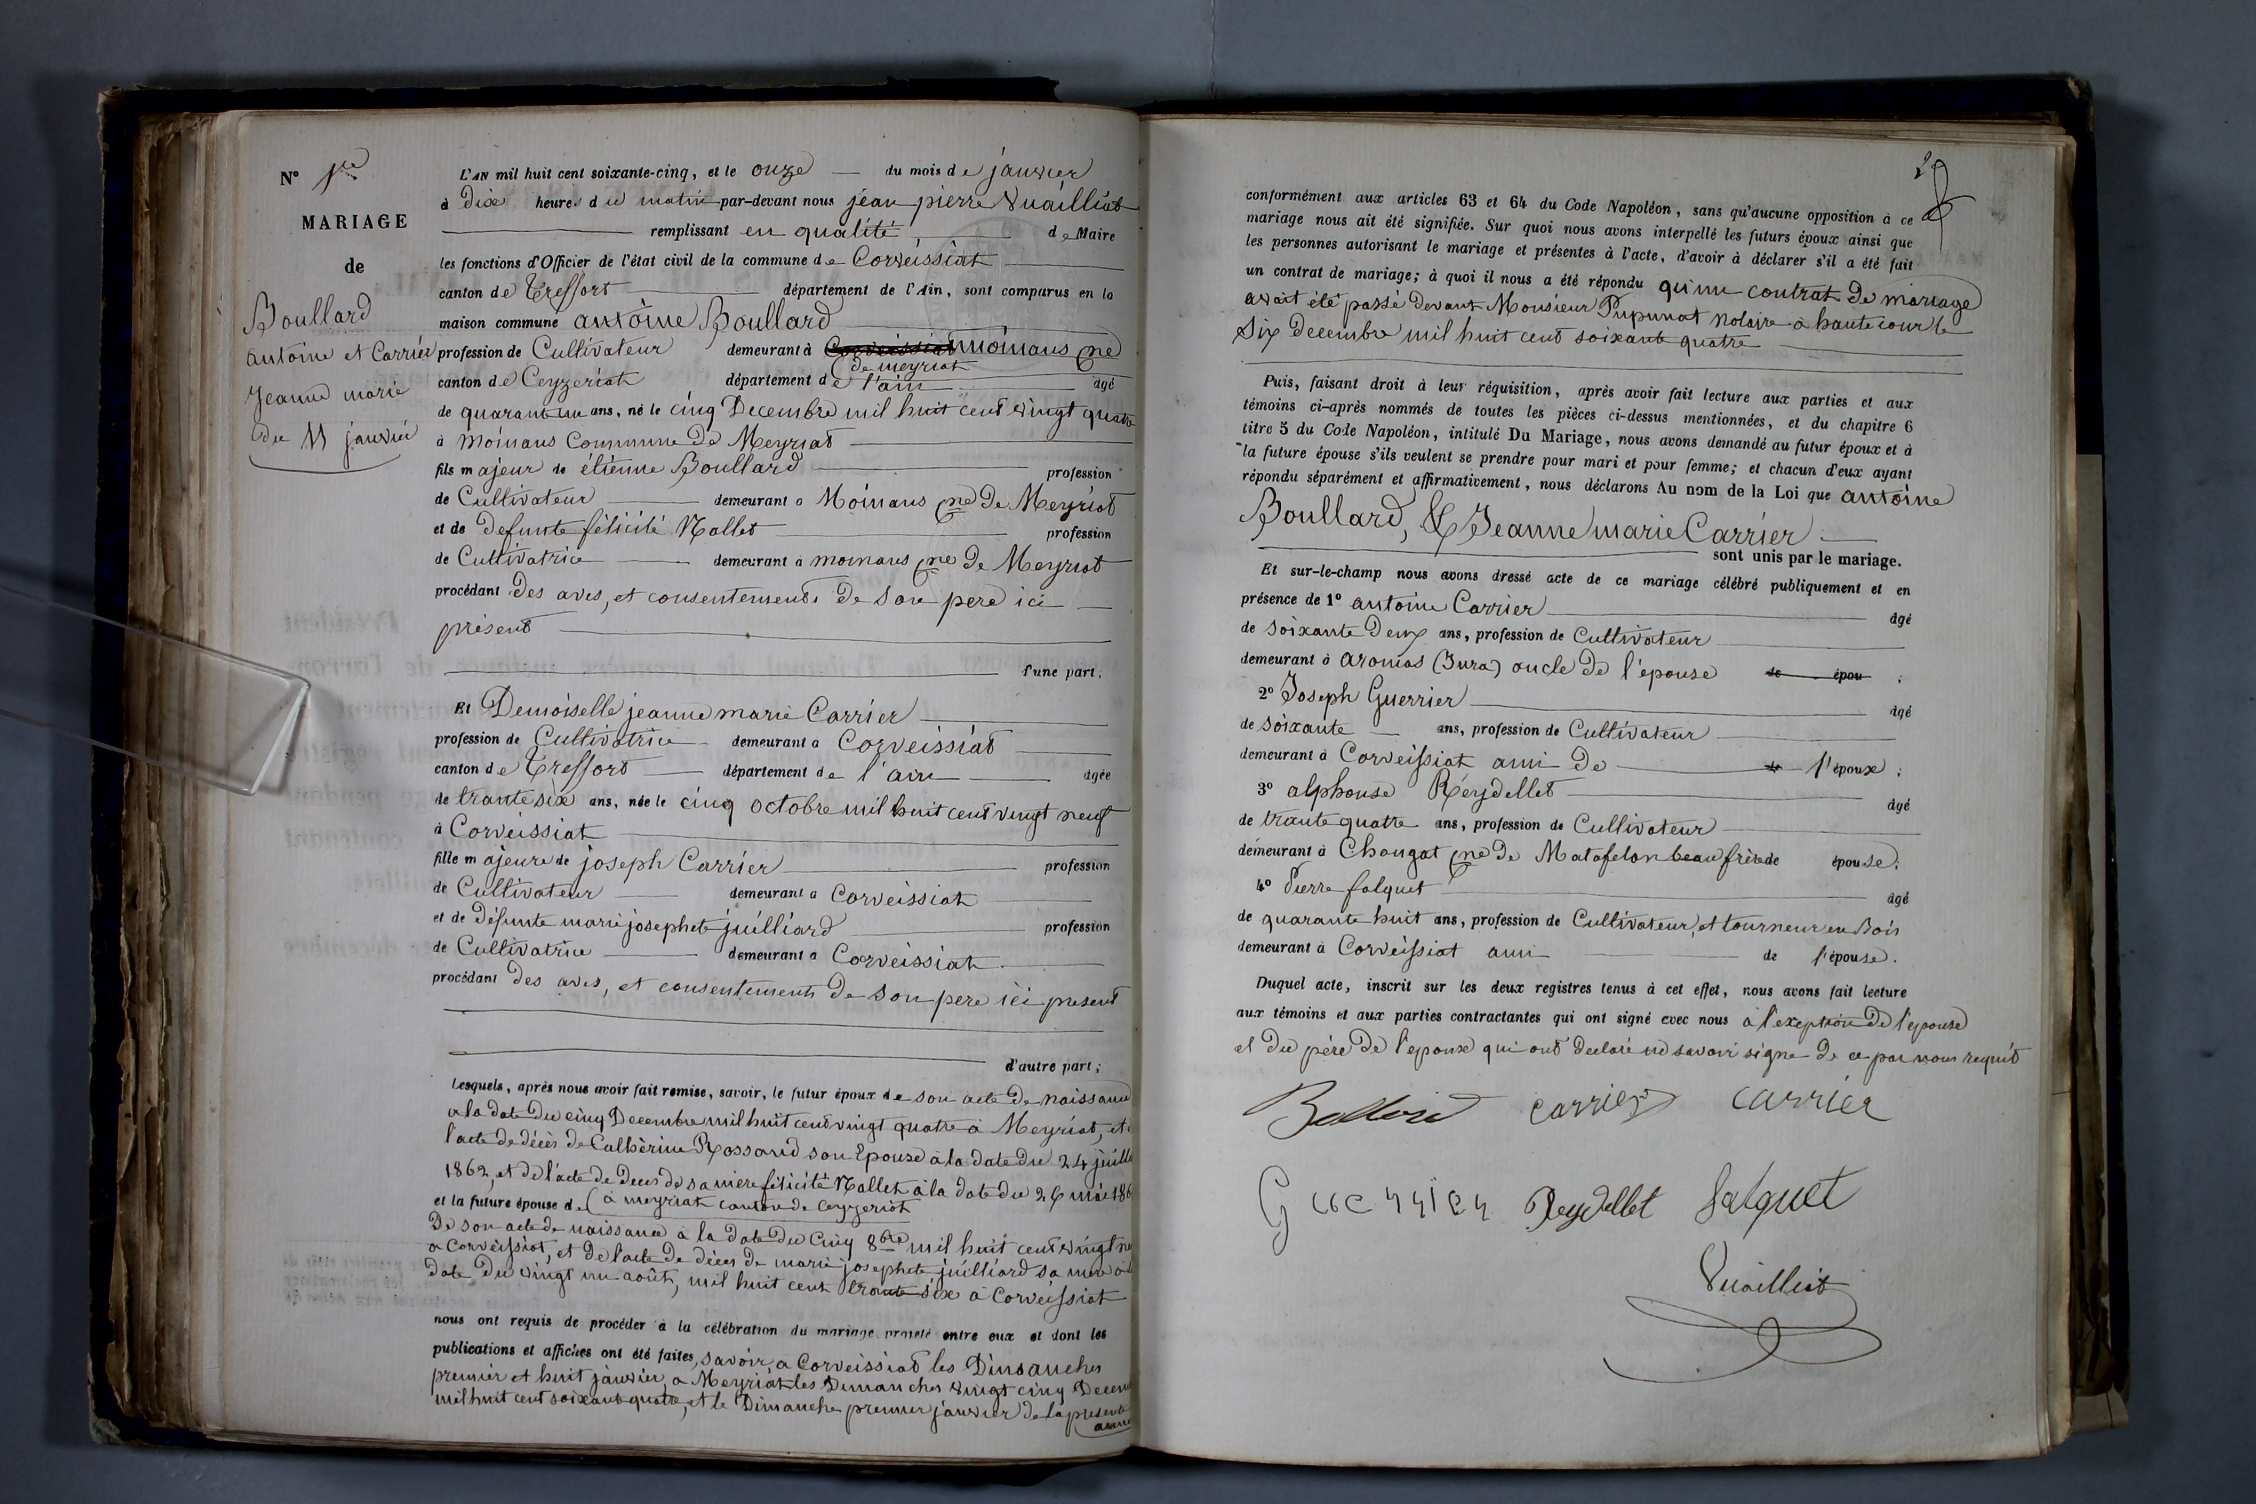 N° 1re
MARIAGE
de
Boullard
antoine et Carrier
Jeanne marie
du 11 janvier
L'AN mil huit cent soixante-cinq, et le onze du mois de janvier
à dix heures du matin par-devant nous jéan pierre Vuailliat
remplissant en qualité de Maire
les fonctions d'Officier de l'état civil de la commune de Corveissiat
canton de Treffort département de l'Ain, sont comparus en la
maison commune antoine Boullard
profession de Cultivateur demeurant à moinans cne
de meyriat
canton de Ceyzeriat département de l'ain âgé
de quarante un ans, né le cinq Decembre mil huit cent vingt quatre
à moinans Commune de Meyriat
fils majeur de étienne Boullard profession
de Cultivateur demeurant à Moinans cne de Meyriat
et de Defunte félicité Nallet profession
de Cultivatrice demeurant à moinans cne de Meyriat
procédant des avis, et consentements de son pere ici
présent
d'une part.
Et Demoiselle jeanne marie Carrier
profession de Cultivatrice demeurant à Corveissiat
canton de Treffort département de l'ain âgée
de trante six ans, née le cinq octobre mil huit cent vingt neuf
à Corveissiat
fille majeure de joseph Carrier profession
de Cultivateur demeurant à Corveissiat
et de défunte marie josephete juilliard profession
de Cultivatrice demeurant à Corveissiat
procédant des avis, et consentements de son pere ici present
d'autre part;
Lesquels, après nous avoir fait remise, savoir, le futur époux de son acte de naissance
a la date du cinq Decembre mil huit cent vingt quatre à Meyriat, et
l'acte de décès de Cathérine Rossand son Epouse à la date du 24 juillet
1862, et de l'acte de Deces de sa mere félicité Nallet à la date du 26 mai 186
et la future épouse de (à meyriat canton de Ceyzeriat
De son acte de naissance à la date du Cinq 8bre mil huit cent vingt ne
a Corveissiat, et de l'acte de décès de marie josephete juilliard sa mere a la
date du vingt un août, mil huit cent trante six à Corveissiat
nous ont requis de procéder à la célébration du mariage projeté entre eux et dont les
publications et affiches ont été faites, savoir, a Corveissiat les Dimanches
premier et huit janvier, a Meyriat les Dimanches vingt cinq Decem
mil huit cent soixante quatre, et le Dimanche premier janvier de la présente
année
2
conformément aux articles 63 et 64 du Code Napoléon, sans qu'aucune opposition à ce
mariage nous ait été signifiée. Sur quoi nous avons interpellé les futurs époux ainsi que
les personnes autorisant le mariage et présentes à l'acte, d'avoir à déclarer s'il a été fait
un contrat de mariage; à quoi il nous a été répondu qu'un contrat de mariage
avait été passé devant Monsieur Pupunat notaire à hautecour le
Six decembre mil huit cent soixante quatre
Puis, faisant droit à leur réquisition, après avoir fait lecture aux parties et aux
témoins ci-après nommés de toutes les pièces ci-dessus mentionnées, et du chapitre 6
titre 5 du Code Napoléon, intitulé Du Mariage, nous avons demandé au futur époux et à
la future épouse s'ils veulent se prendre pour mari et pour femme; et chacun d'eux ayant
répondu séparément et affirmativement, nous déclarons Au nom de la Loi que antoine
Boullard, & Jeanne marie Carrier
sont unis par le mariage.
Et sur-le-champ nous avons dressé acte de ce mariage célébré publiquement et en
présence de 1° antoine Carrier âgé
de soixante deux ans, profession de Cultivateur
demeurant à aromas (Jura) oncle de l'épouse de épou ;
2° Joseph Guerrier âgé
de soixante ans, profession de Cultivateur
demeurant à Corveissiat ami de de l'époux ;
3° alphonse Réydellet âgé
de trante quatre ans, profession de Cultivateur
demeurant à Chougat cne de Matafelon beau frère de épouse;
4° Pierre falquet âgé
de quarante huit ans, profession de Cultivateur, et tourneur en Bois
demeurant à Corveissiat ami de l'épouse.
Duquel acte, inscrit sur les deux registres tenus à cet effet, nous avons fait lecture
aux témoins et aux parties contractantes qui ont signé avec nous à l'exeption de l'epouse
et du pére de l'epoux qui ont declaré ne savoir signe de ce par nous requit
Bollard carrier carrier
Guerrier Reydellet falquet
Vuailliat